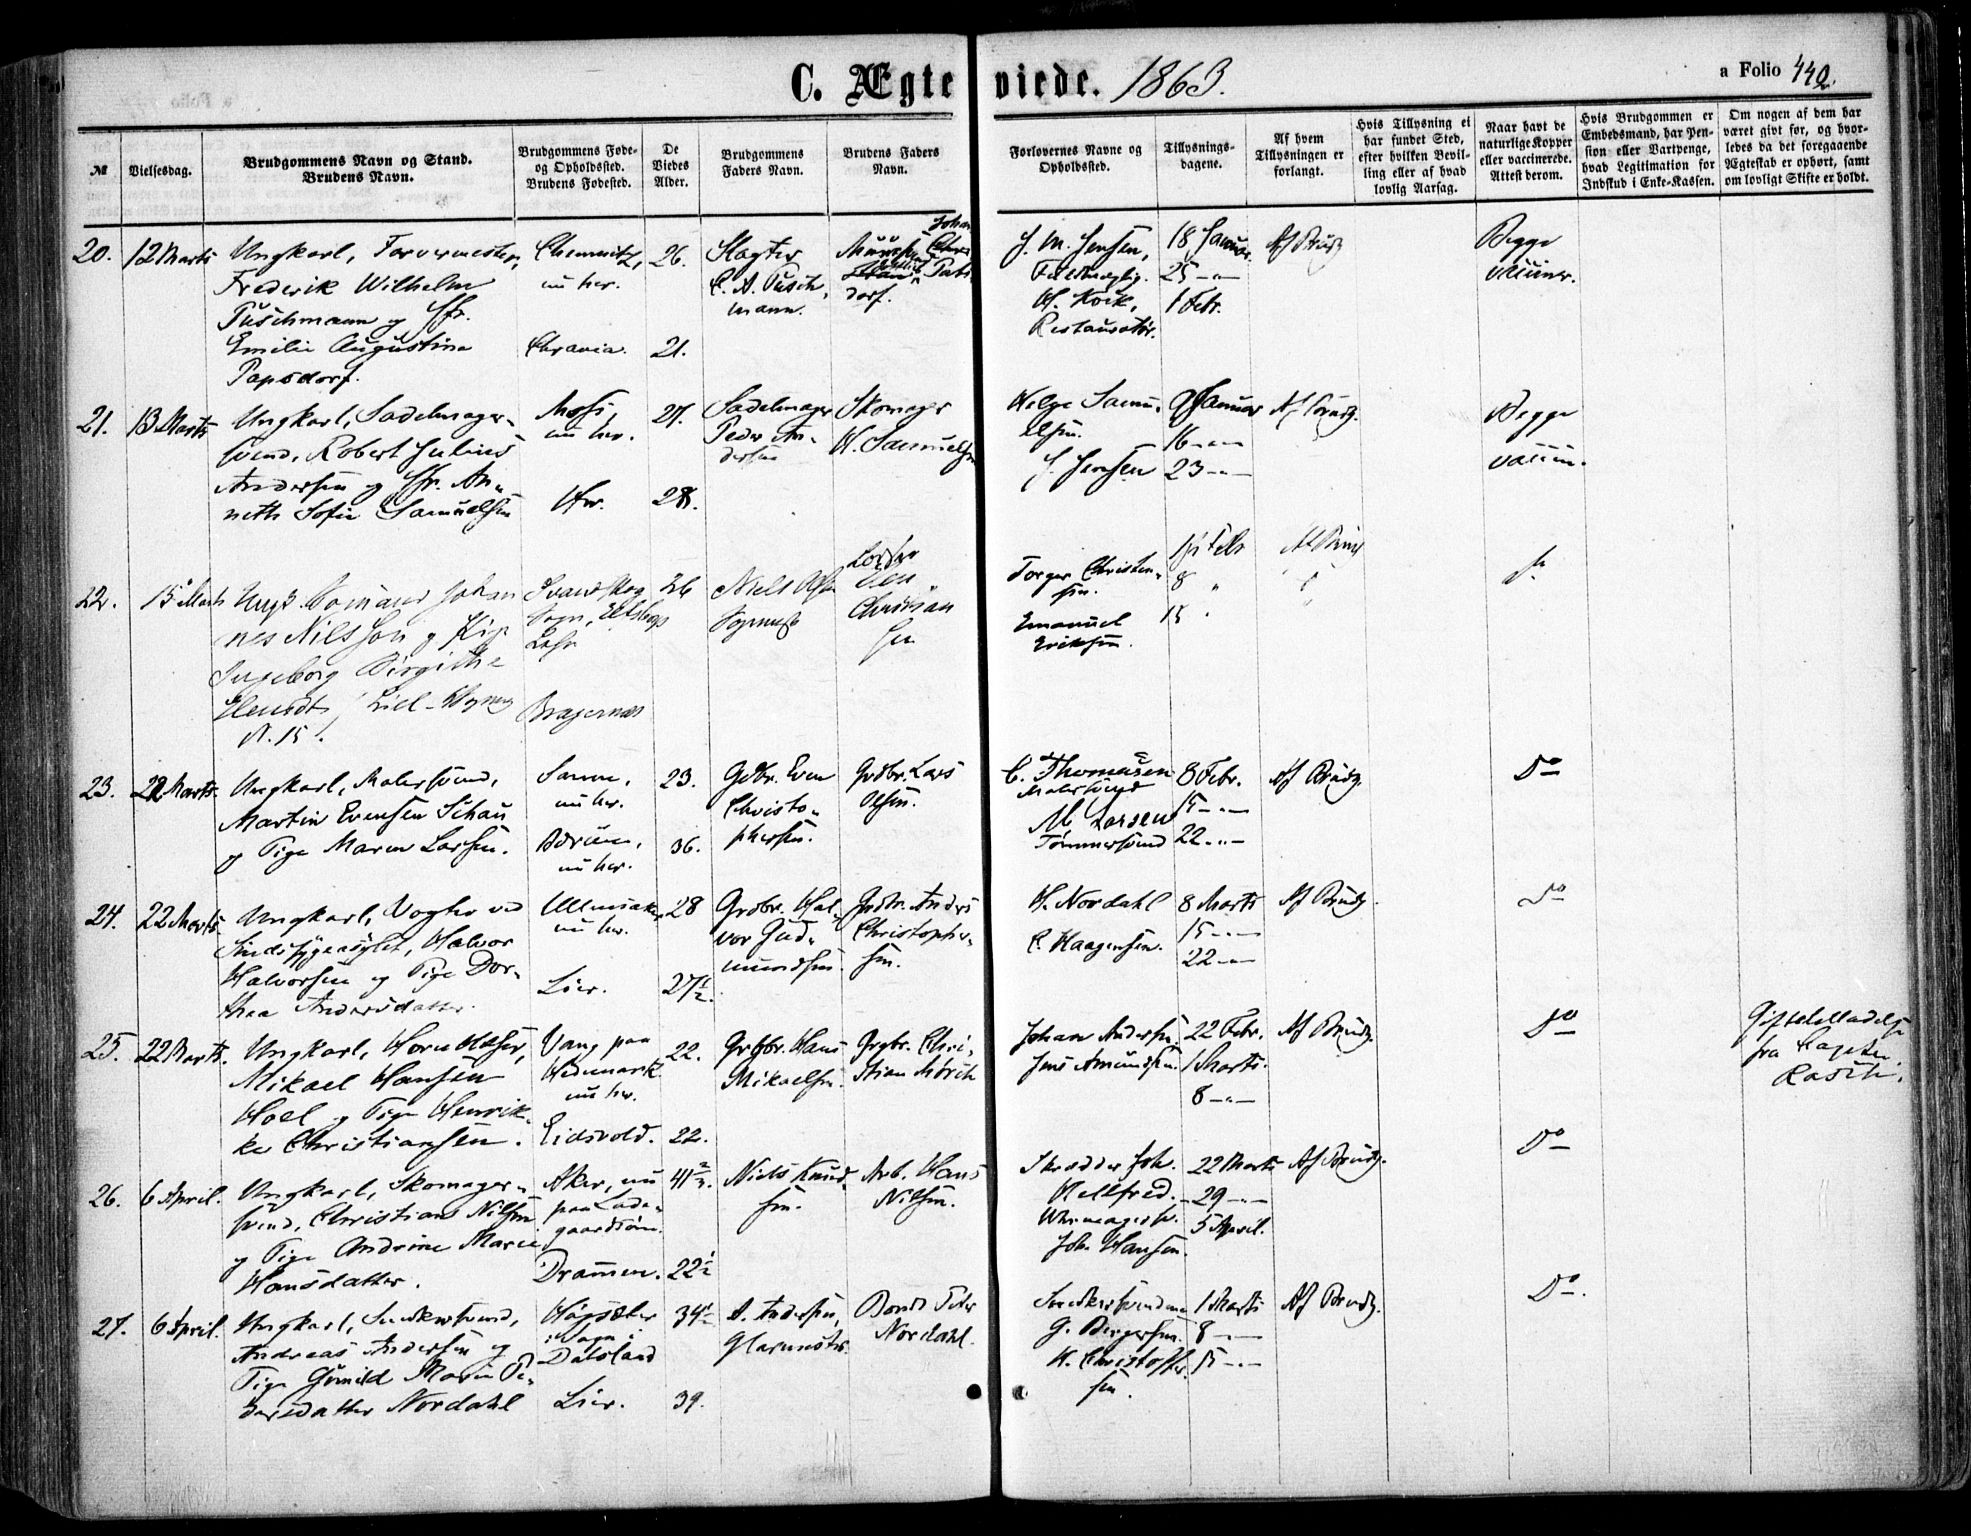 C. Ægteviede. 1863.
a Folio 442.
№
Vielsesdag.
Brudgommens Navn og Stand.
Brudens Navn.
Brudgommens Føde-
og Opholdssted.
Brudens Fødested.
De
Viedes
Alder.
Brudgommens
Faders Navn.
Brudens Faders
Navn.
Forlovernes Navne og
Opholdssted.
Tillysnings-
dagene.
Af hvem
Tillysningen er
forlangt.
Hvis Tillysning ei
har fundet Sted,
efter hvilken Bevil-
ling eller af hvad
lovlig Aarsag.
Naar havt de
naturlige Kopper
eller vaccinerede.
Attest derom.
Hvis Brudgommen er
Embedsmand, har Pen-
sion eller Vartpenge,
hvad Legitimation for
Indskud i Enke-Kassen.
Om nogen af dem har
været givt før, og hvor-
ledes da det foregaaende
Ægteskab er ophørt, samt
om lovligt Skifte er holdt.
20.
12 Marts
Ungkarl, Farvermester,
Frederik Wilhelm
Puschmann og Jfr.
Emilie Augustine
Papsdorf.
Chemnitz,
nu her.
Chrania.
26.
21.
Slagter
C. A. Pusch-
mann.
Johan
dorf.
J. M. Jensen,
Fuldmægtig.
H. Koik,
Restauratør.
18 Januar
25 -"-
1 Febr.
Af Brudg
Begge
vacciner.
21.
13 Marts
Ungkarl, Sadelmager-
svend, Robert Julius
Andersen og Jfr. An-
neth Sofie Samuelsen
Moss,
nu her.
Her.
27.
28.
Sadelmager
Peder An-
dersen
Skomager
H. Samuelsen
Helge Samu-
elsen.
J. Jensen
9 Januar
16 -"-
23 -"-
Af Brudg.
Begge
vaccin.
22.
15 Marts
Ungk. Johan
nes Nilsson og Pige
Ingeborg Birgithe
N. 15.
Sogn, Elfsborgs
Lehn
Bragernæs
26
Niels Olsen
Christian
sen
Torger Christen-
sen.
Emanuel
Eriksen.
1ste Febr
8 "
15 "
Af Brudg
23.
22 Marts.
Ungkarl, Malersvend,
Martin Evensen Schau
og Pige Maren Larsen.
Sarum,
nu her.
Bærum,
nu her.
23.
36.
Gdbr. Even
Christo-
phersen.
Grdbr. Lars
Olsen.
C. Thomasen
Malersvend
M Larsen
Tømmersvend
8 Febr.
15 -"-
22 -"-
Af Brudg.
Do
24.
22 Marts
Ungkarl, Vogter ved
Sindssygeasylet, Halvor
Halvorsen og Pige Dor-
thea Andersdatter.
Ullensaker
nu her.
Lier.
28
27½.
Grdbr. Hal-
vor Gud-
mundsen.
Grdbr. Anders
Christopher-
sen.
H. Nordahl
C. Haagensen.
8 Marts
15 -"-
22 -"-
Af Brudg.
Do
25.
22 Marts.
Ungkarl,
Mikael Hansen
Hoel og Pige Henrik-
ke Christiansen.
Vang paa
Hedemark.
nu her.
Eidsvold.
22.
22.
Grdbr. Hans
Mikaelsen.
Grgbr. Chri-
stian
Johan Andersen.
Jens Amundsen.
22 Febr.
1 Marts.
8 -"-
Af Brudg.
Do
Giftetilladelse
fra Capten
Rasch.
26.
6 April.
Ungkarl, Skomager-
svend, Christian Nilsen
og Pige Andrine Marie
Hansdatter.
Aker, nu
paa Lade-
gaardsøen.
Drammen.
41⅔.
22½
Niels Knud-
sen.
Arb. Hans
Nilsen.
Skrædder Joh.
Hellfred.
Uhrmagersv.
Joh. Hansen.
22 Marts
29 -"-
5 April.
Af Brudg.
Do
27.
6 April.
Ungkarl, Snedkersvend,
Andreas Andersen og
Pige Gunild Marie Pe-
dersdatter Nordahl
Högsäter
Sogn i
Dalsland
Lier.
34½
39.
A. Andersen,
Glarmester.
Bonde Peter
Nordahl.
Snedkersvendene
G. Bergersen.
H. Christoffer-
sen.
1 Marts
8 -"-
15 -"-
Af Brudg.
Do.